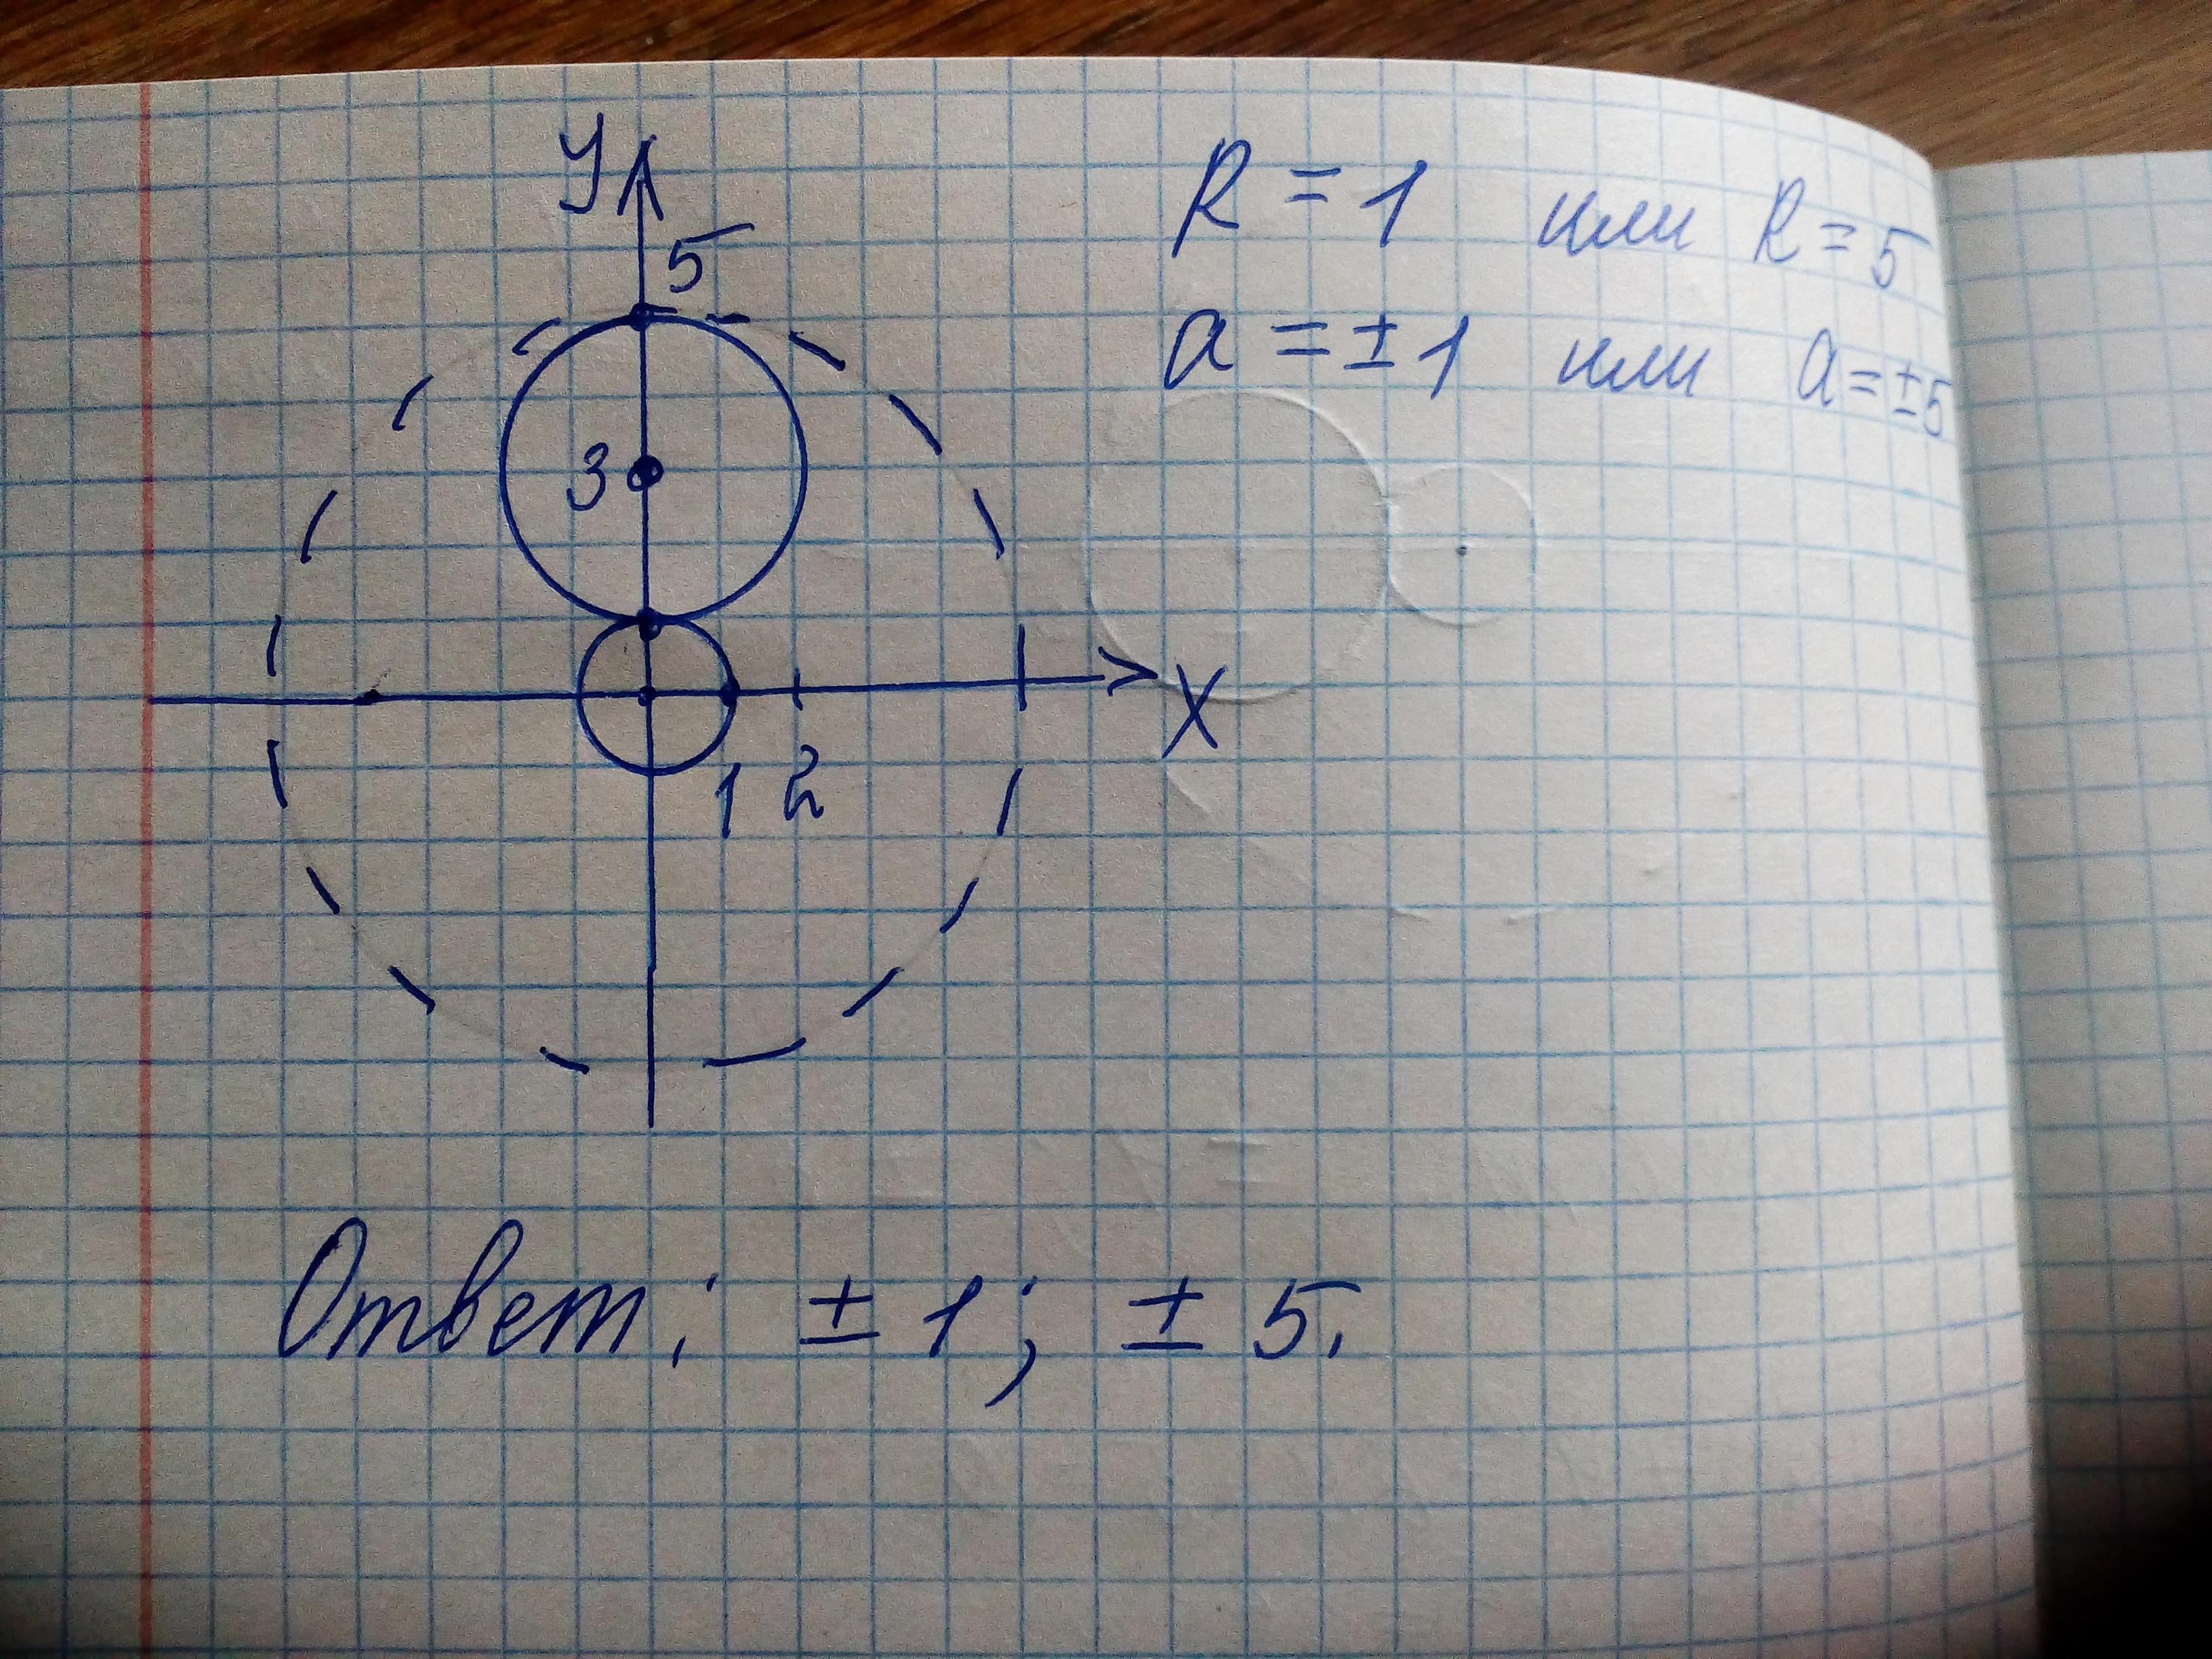 У
5
R = 1 или R = 5
a = ± 1 или a = ± 5
3
X
1 2
Ответ: ± 1; ± 5.